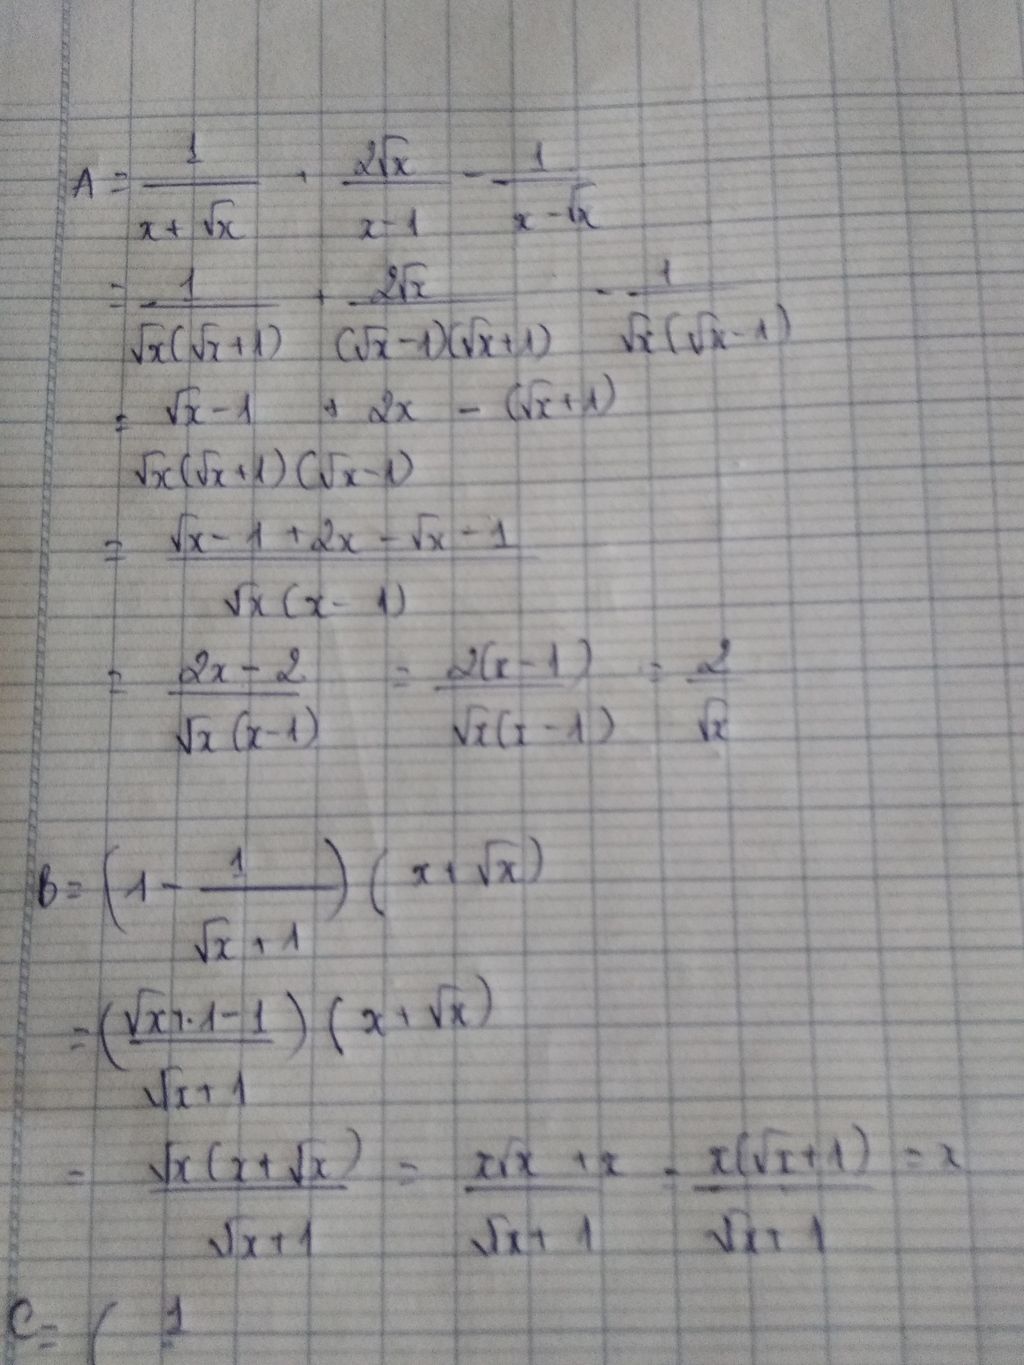 A = \frac{1}{x + \sqrt{x}} + \frac{2\sqrt{x}}{x - 1} - \frac{1}{x - \sqrt{x}}
= \frac{1}{\sqrt{x}(\sqrt{x} + 1)} + \frac{2\sqrt{x}}{(\sqrt{x} - 1)(\sqrt{x} + 1)} - \frac{1}{\sqrt{x}(\sqrt{x} - 1)}
= \frac{\sqrt{x} - 1 + 2x - (\sqrt{x} + 1)}{\sqrt{x}(\sqrt{x} + 1)(\sqrt{x} - 1)}
= \frac{\sqrt{x} - 1 + 2x - \sqrt{x} - 1}{\sqrt{x}(x - 1)}
= \frac{2x - 2}{\sqrt{x}(x - 1)} = \frac{2(x - 1)}{\sqrt{x}(x - 1)} = \frac{2}{\sqrt{x}}
B = \left(1 - \frac{1}{\sqrt{x} + 1}\right)(x + \sqrt{x})
= \left(\frac{\sqrt{x} + 1 - 1}{\sqrt{x} + 1}\right)(x + \sqrt{x})
= \frac{\sqrt{x}(x + \sqrt{x})}{\sqrt{x} + 1} = \frac{x\sqrt{x} + x}{\sqrt{x} + 1} = \frac{x(\sqrt{x} + 1)}{\sqrt{x} + 1} = x
C = ( 1